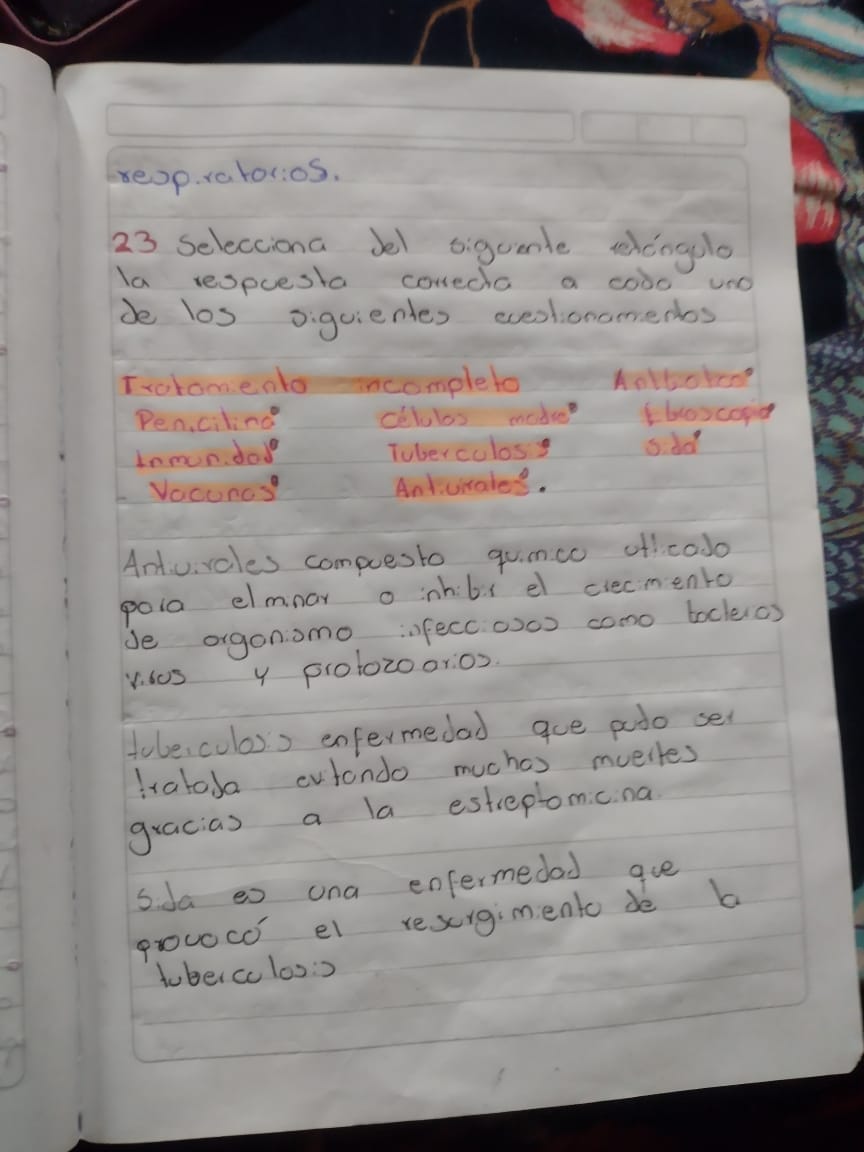 respiratorios.
23 Selecciona del siguiente retángulo
la respuesta correcta a cada uno
de los siguientes cuestionamentos
Tratamiento incompleto Antibotco
Penicilina Células madre Fibroscopia
Inmunidad Tuberculosis Sida
Vacunas Antivirales.
Antivirales compuesto quimico utlicado
para elminar o inhibir el crecimiento
de organismo infecciosos como bacterias
virus y protozoarios.
tuberculosis enfermedad que pudo ser
tratada evitando muchas muertes
gracias a la estreptomicina.
Sida es una enfermedad que
provocó el resurgimiento de la
tuberculosis